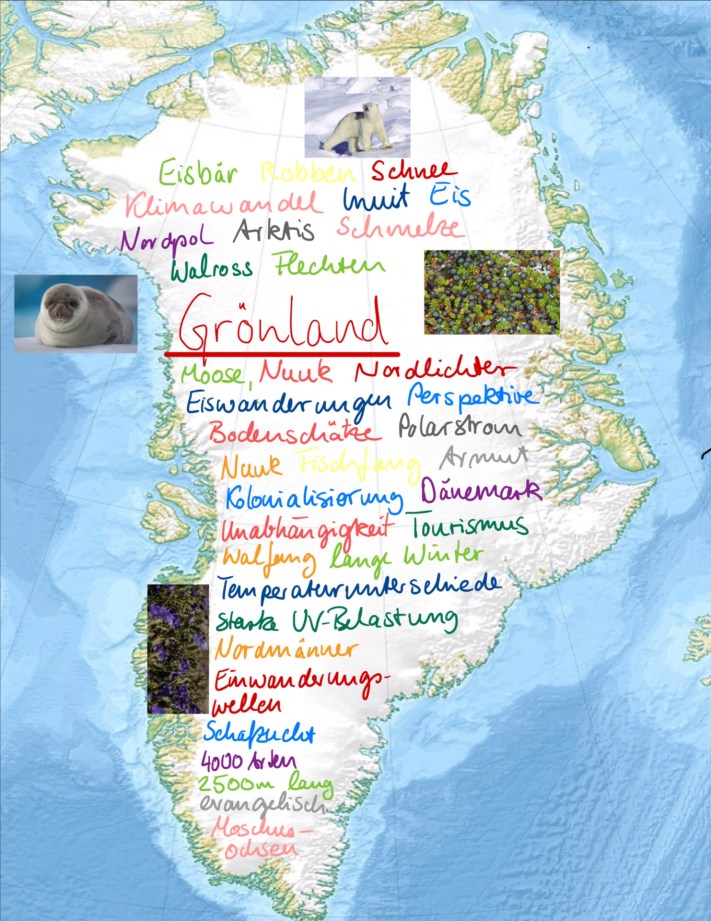 Eisbär Robben Schnee
Klimawandel Inuit Eis
Nordpol Arktis Schmelze
Walross Flechten
Grönland
Moose, Nuuk Nordlichter
Eiswanderungen Perspektive
Bodenschätze Polarstrom
Nuuk Fischfang Armut
Kolonialisierung Dänemark
Unabhängigkeit Tourismus
Walfang lange Winter
Temperaturunterschiede
starke UV-Belastung
Nordmänner
Einwanderungs-
wellen
Schafzucht
4000 Arten
2500m lang
evangelisch
Moschus-
ochsen